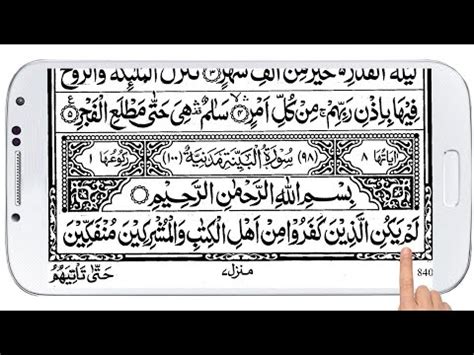 لَيْلَةُ الْقَدْرِ ۙ خَيْرٌ مِّنْ اَلْفِ شَهْرٍ ۝٣ تَنَزَّلُ الْمَلٰٓئِكَةُ وَالرُّوْحُ
فِيْهَا بِاِذْنِ رَبِّهِمْ ۚ مِنْ كُلِّ اَمْرٍ ۝٤ سَلٰمٌ ۛ هِيَ حَتّٰى مَطْلَعِ الْفَجْرِ ۝٥
اٰيَاتُهَا ٨ (٩٨) سُوْرَةُ الْبَيِّنَةِ مَدَنِيَّةٌ (١٠٠) رُكُوْعُهَا ١
بِسْمِ اللّٰهِ الرَّحْمٰنِ الرَّحِيْمِ
لَمْ يَكُنِ الَّذِيْنَ كَفَرُوْا مِنْ اَهْلِ الْكِتٰبِ وَالْمُشْرِكِيْنَ مُنْفَكِّيْنَ
840 منزل ٧ حَتّٰى تَاْتِيَهُمُ